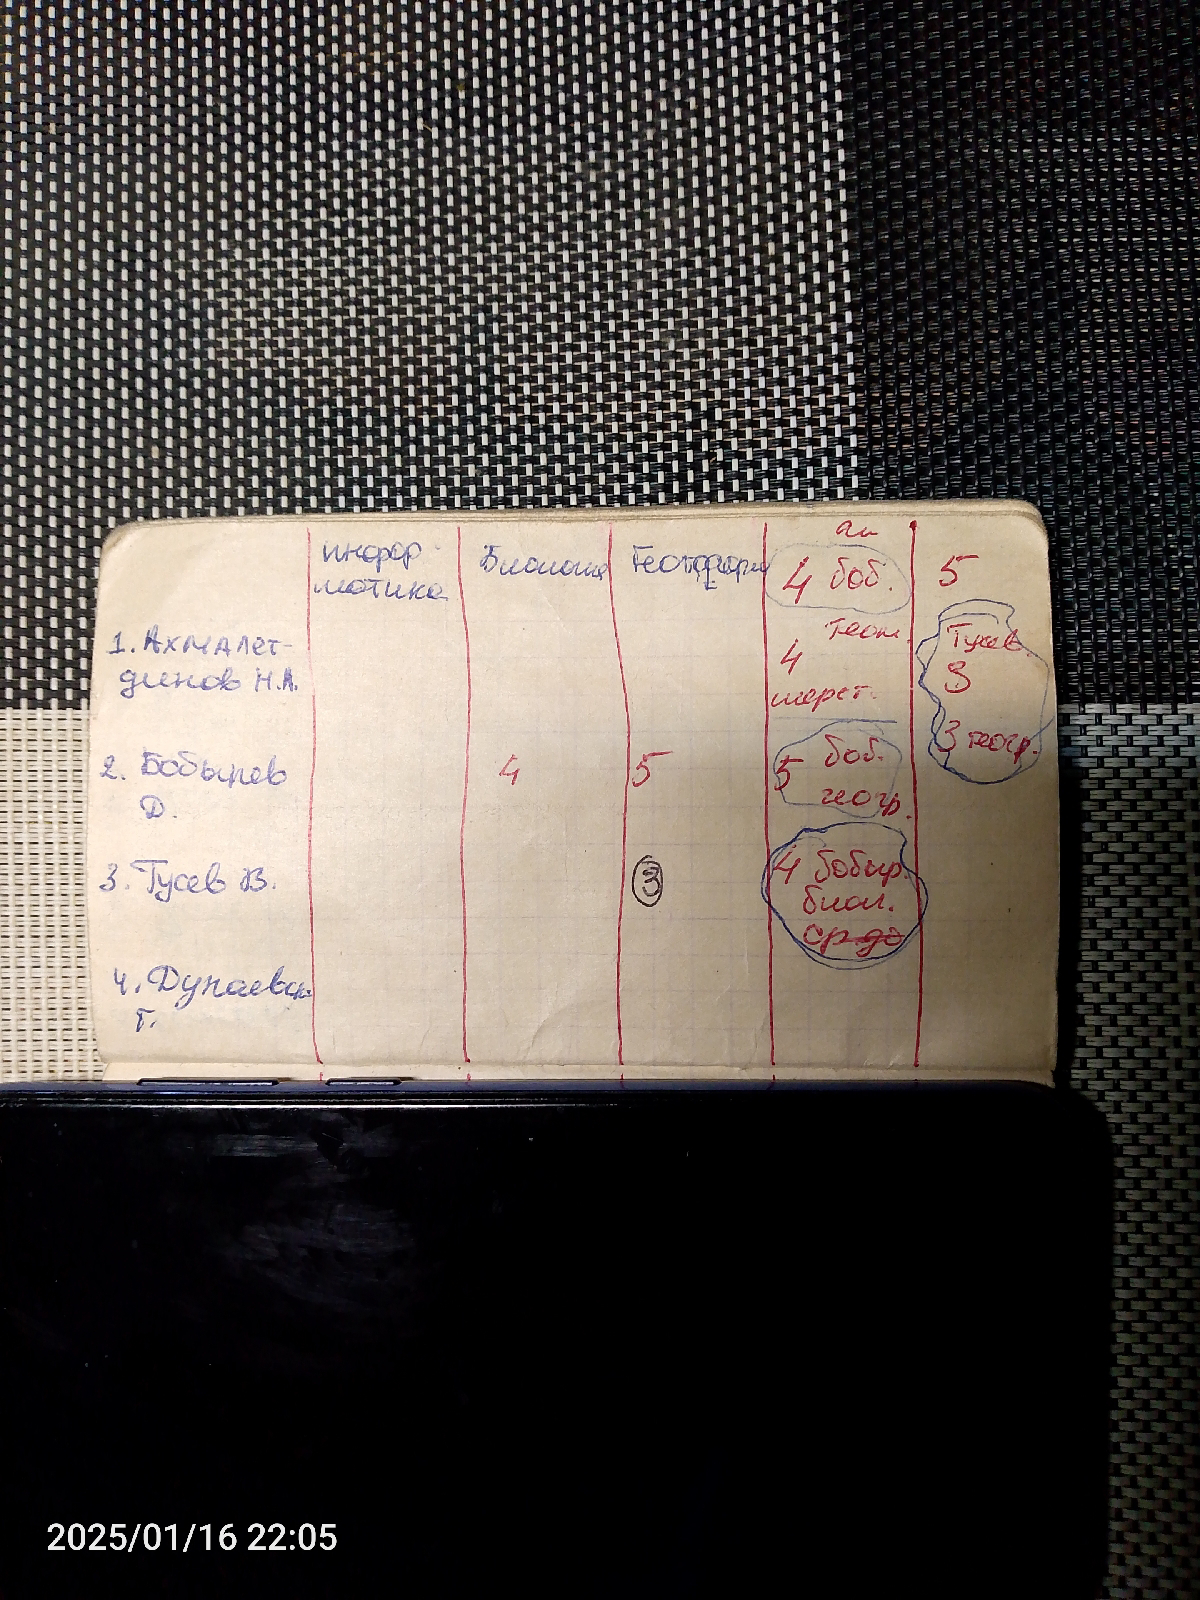 инфор-
матика
Биология
География
ал
4 боб.
5
1. Ахмалет-
динов Н.А.
4 геом.
шерст.
Гусев.
3
3 геогр.
2. Бобырев
Д.
4
5
5 боб.
геогр.
3. Гусев В.
3
4 бобыр.
биол.
4. Дунаевск.
Г.
2025/01/16 22:05